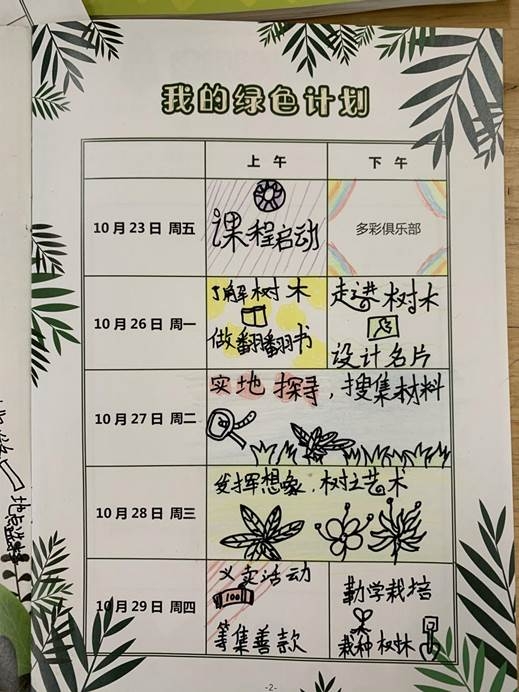 我的绿色计划
上午 下午
10月23日 周五 课程启动 多彩俱乐部
10月26日 周一
了解树木
做翻翻书
走进树木
设计名片
10月27日 周二
实地探寻，搜集材料
10月28日 周三
发挥想象，树立艺术
10月29日 周四
义卖活动
100
筹集善款
勤学栽培
栽种树林
-2-